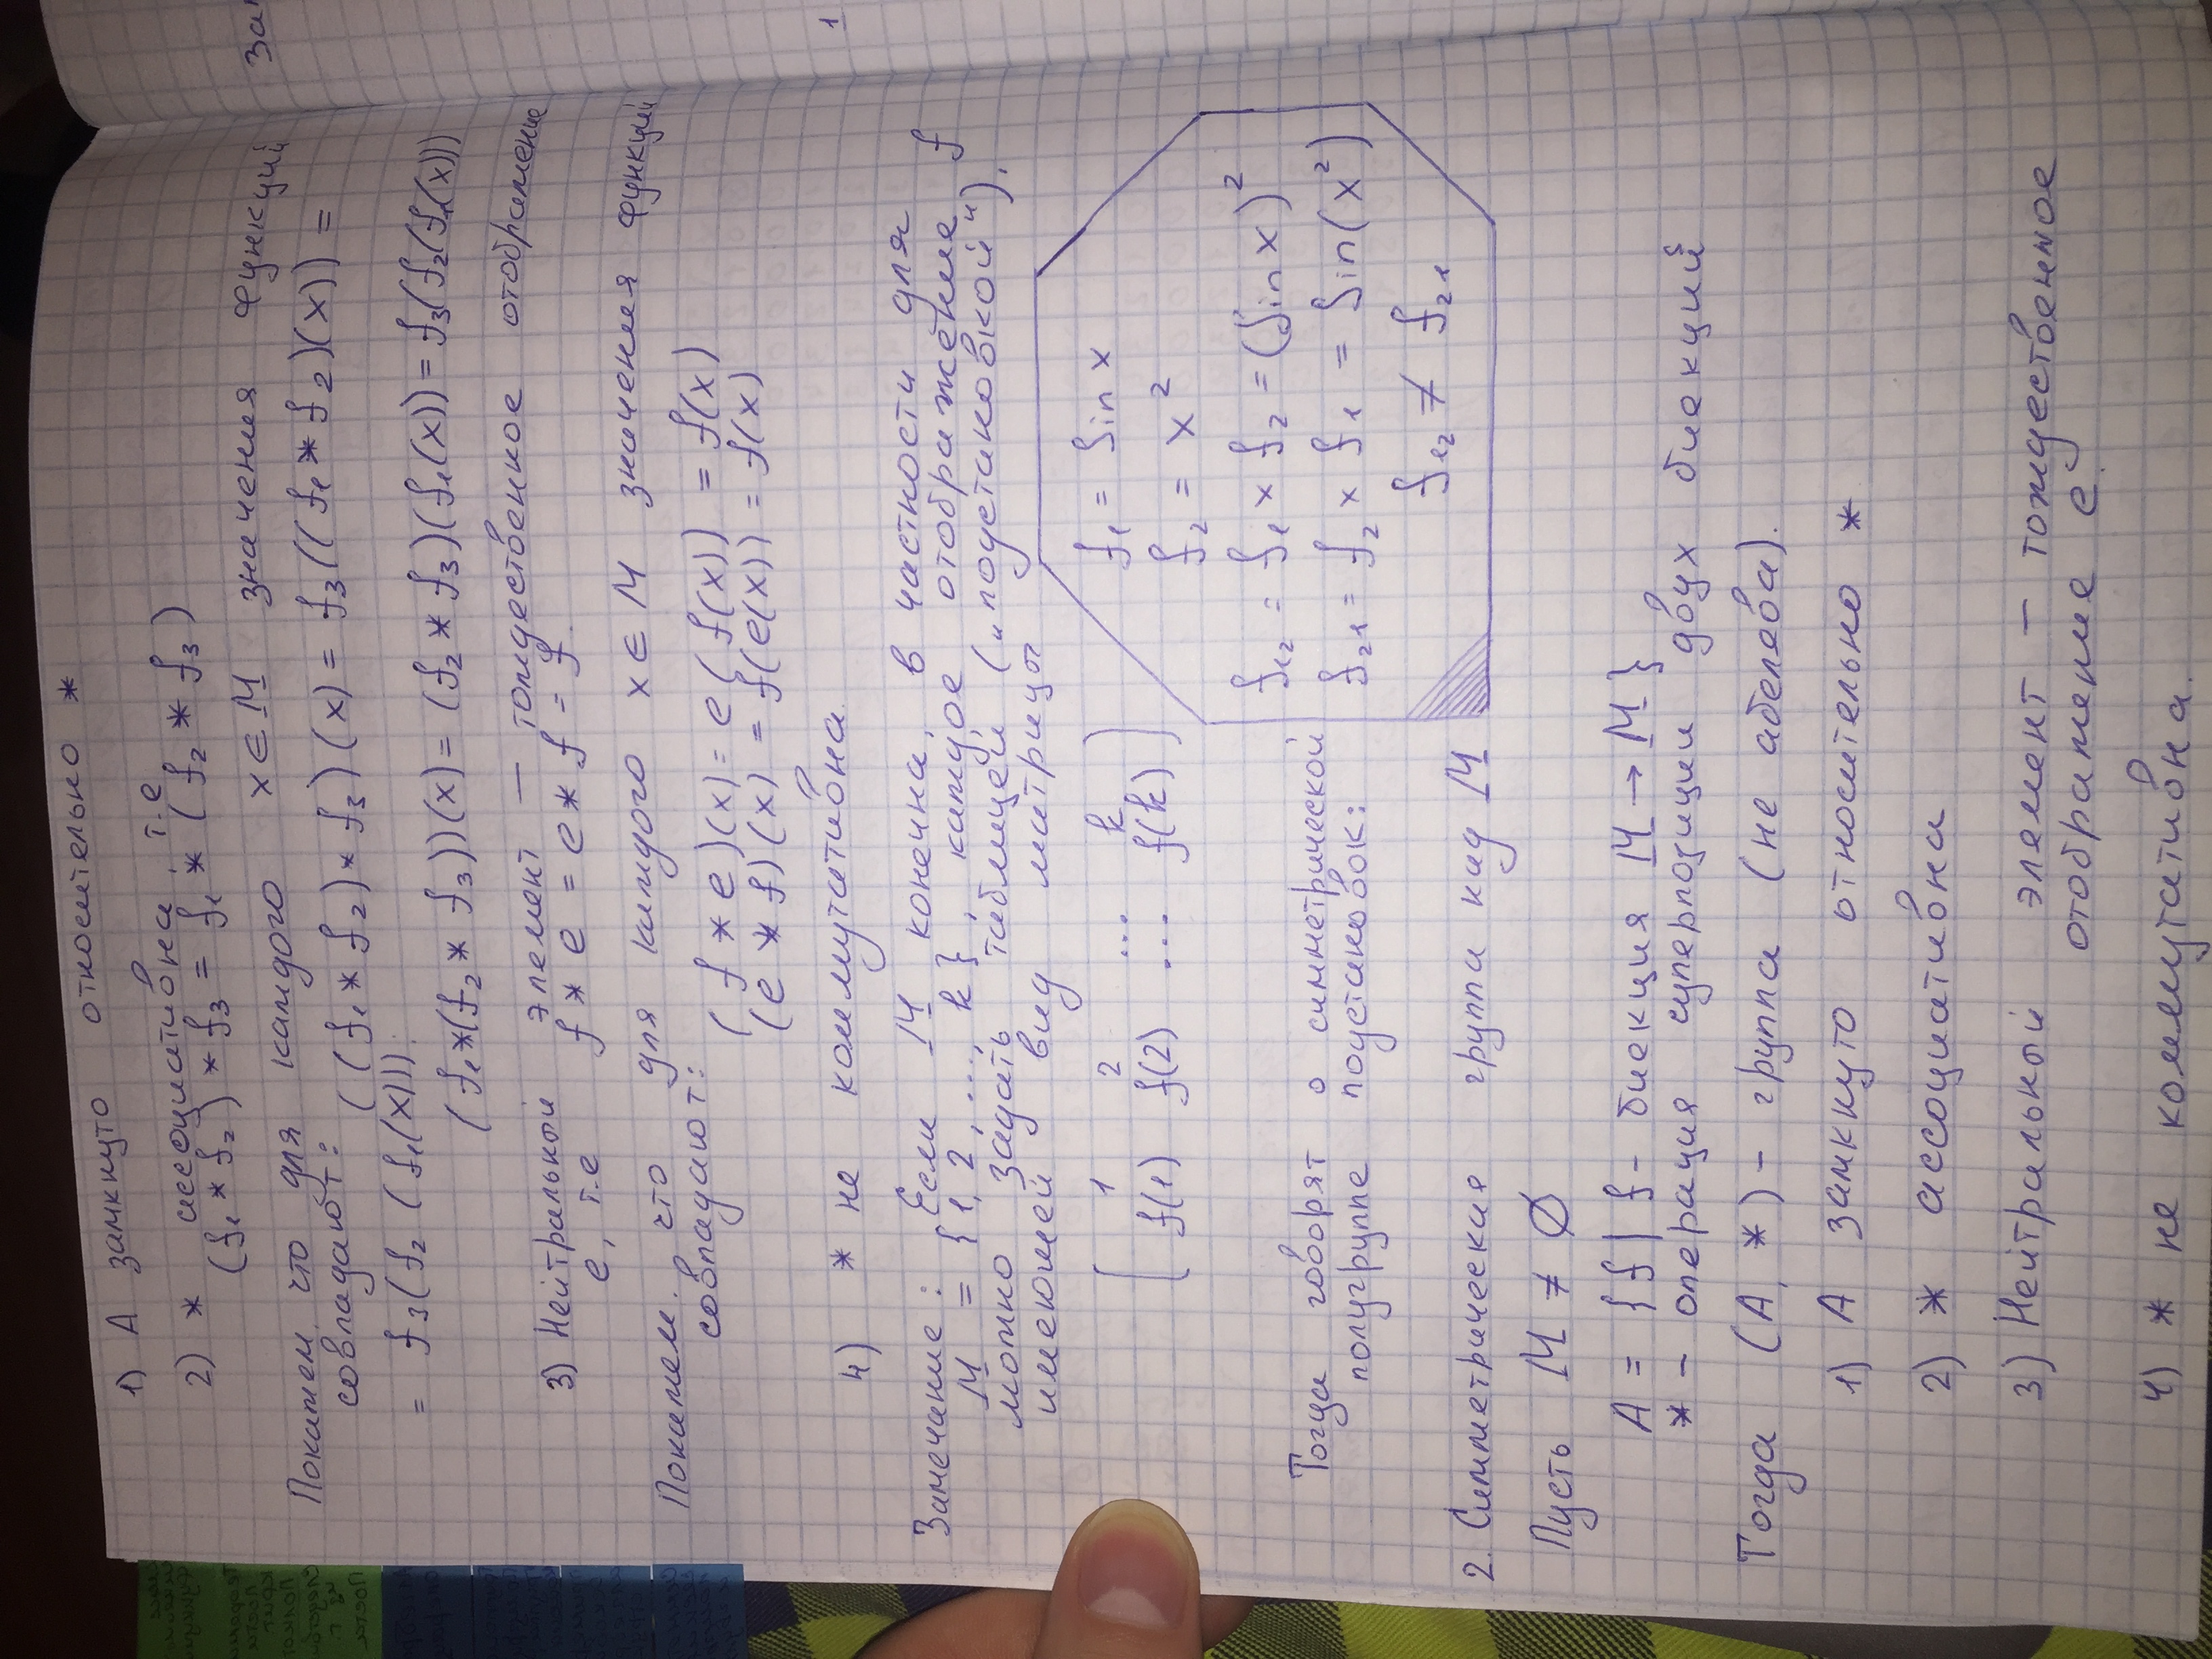 1) А замкнуто относительно *
2) * ассоциативна, т.е
(f₁ * f₂) * f₃ = f₁ * (f₂ * f₃)
Покажем, что для каждого x ∈ M значения функций
совпадают: ((f₁ * f₂) * f₃)(x) = f₃((f₁ * f₂)(x)) =
= f₃(f₂(f₁(x)));
(f₁*(f₂ * f₃))(x) = (f₂ * f₃)(f₁(x)) = f₃(f₂(f₁(x)))
3) Нейтральный элемент — тождественное отображение
e, т.е f * e = e * f = f.
Покажем, что для каждого x ∈ M значения функций
совпадают:
(f * e)(x) = e(f(x)) = f(x)
(e * f)(x) = f(e(x)) = f(x)
4) * не коммутативна.
Замечание: Если M конечна, в частности для
M = {1, 2, ..., k}, каждое отображение f
можно задать таблицей („подстановкой"),
имеющей вид матрицы
( 1 2 ... k
f(1) f(2) ... f(k) )
Тогда говорят о симметрической
полугруппе подстановок:
f₁ = Sin x
f₂ = x²
f₁₂ = f₁ × f₂ = (Sin x)²
f₂₁ = f₂ × f₁ = Sin(x²)
f₁₂ ≠ f₂₁
2. Симметрическая группа над M
Пусть M ≠ ∅
A = {f | f - биекция M → M}
* - операция суперпозиции двух биекций
Тогда (A, *) - группа (не абелева).
1) А замкнуто относительно *
2) * ассоциативна
3) Нейтральный элемент — тождественное
отображение e.
4) * не коммутативна.
1